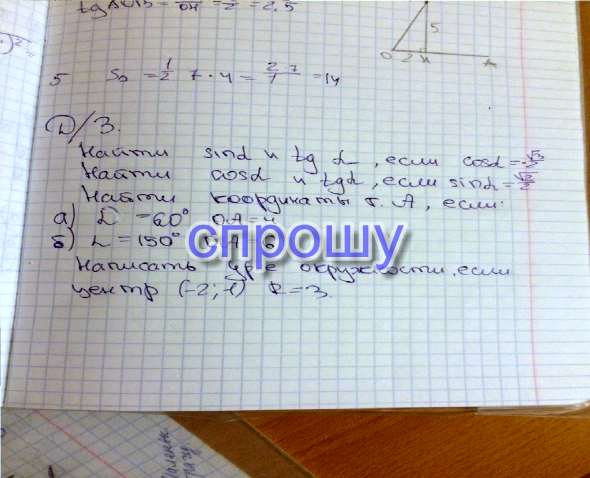 tg AOB = 5/2 = 2.5
5
O 2 H A
5 S₀ = 1/2 7·4 = 2·7/1 = 14
Д/З.
Найти sinα и tg α, если cosα =
Найти cosα и tgα, если sinα = √2/2
Найти координаты т. А, если:
а) α = 60° OA = 4
б) α = 150° OA = 6
спрошу
Написать ур-е окружности, если
центр (-2; -1) R = 3.